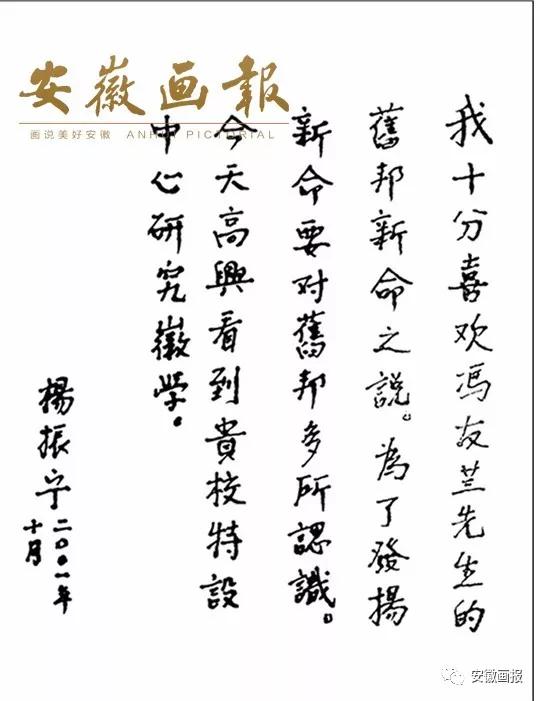 安徽画報
画说美好安徽 ANHUI PICTORIAL
我十分喜欢冯友兰先生的
舊邦新命之説。為了發揚
新命要对舊邦多所認識。
今天高興看到貴校特設
中心研究徽学。
楊振宁二〇〇一年
十月
安徽画报